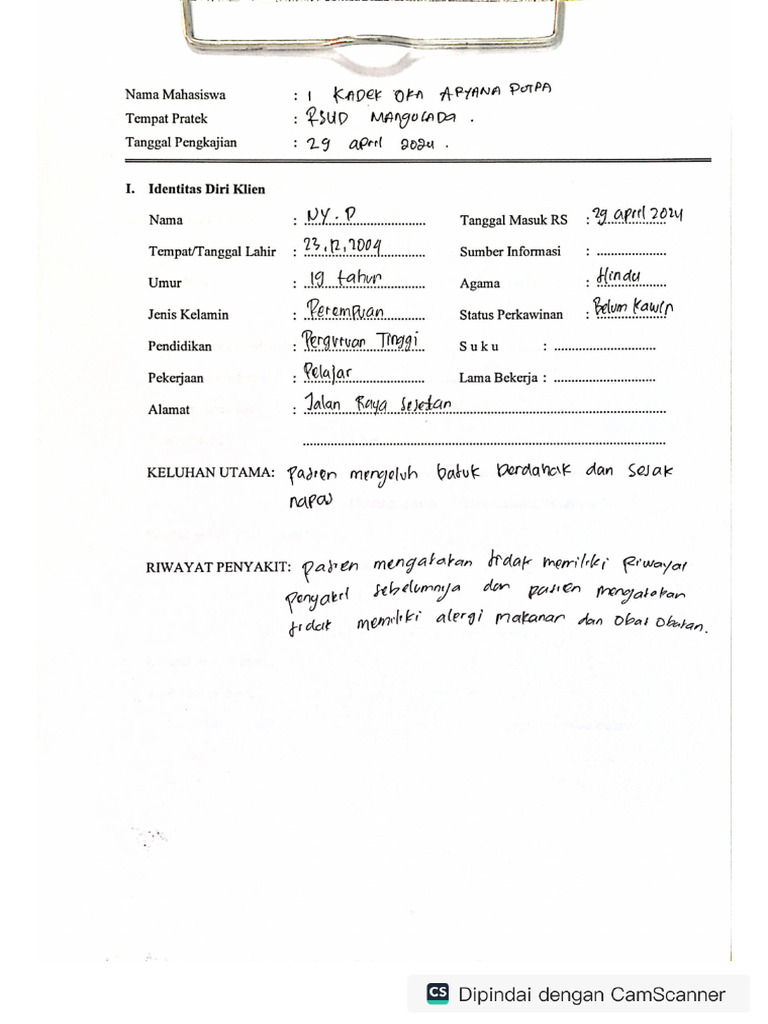 Nama Mahasiswa : I KADEK OKA ARYANA PUTRA
Tempat Pratek : RSUD MANGUSADA .
Tanggal Pengkajian : 29 april 2024 .
I. Identitas Diri Klien
Nama : NY. P Tanggal Masuk RS : 29 april 2024
Tempat/Tanggal Lahir : 23.12.2004 Sumber Informasi : ....................
Umur : 19 tahun Agama : Hindu
Jenis Kelamin : Perempuan Status Perkawinan : Belum Kawin
Pendidikan : Perguruan Tinggi S u k u : .............................
Pekerjaan : Pelajar Lama Bekerja : .............................
Alamat : Jalan Raya Sesetan
KELUHAN UTAMA: pasien mengeluh batuk berdahak dan sesak
napas
RIWAYAT PENYAKIT: pasien mengatakan tidak memiliki Riwayat
penyakit sebelumnya dan pasien mengatakan
tidak memiliki alergi makanan dan obat obatan.
CS Dipindai dengan CamScanner